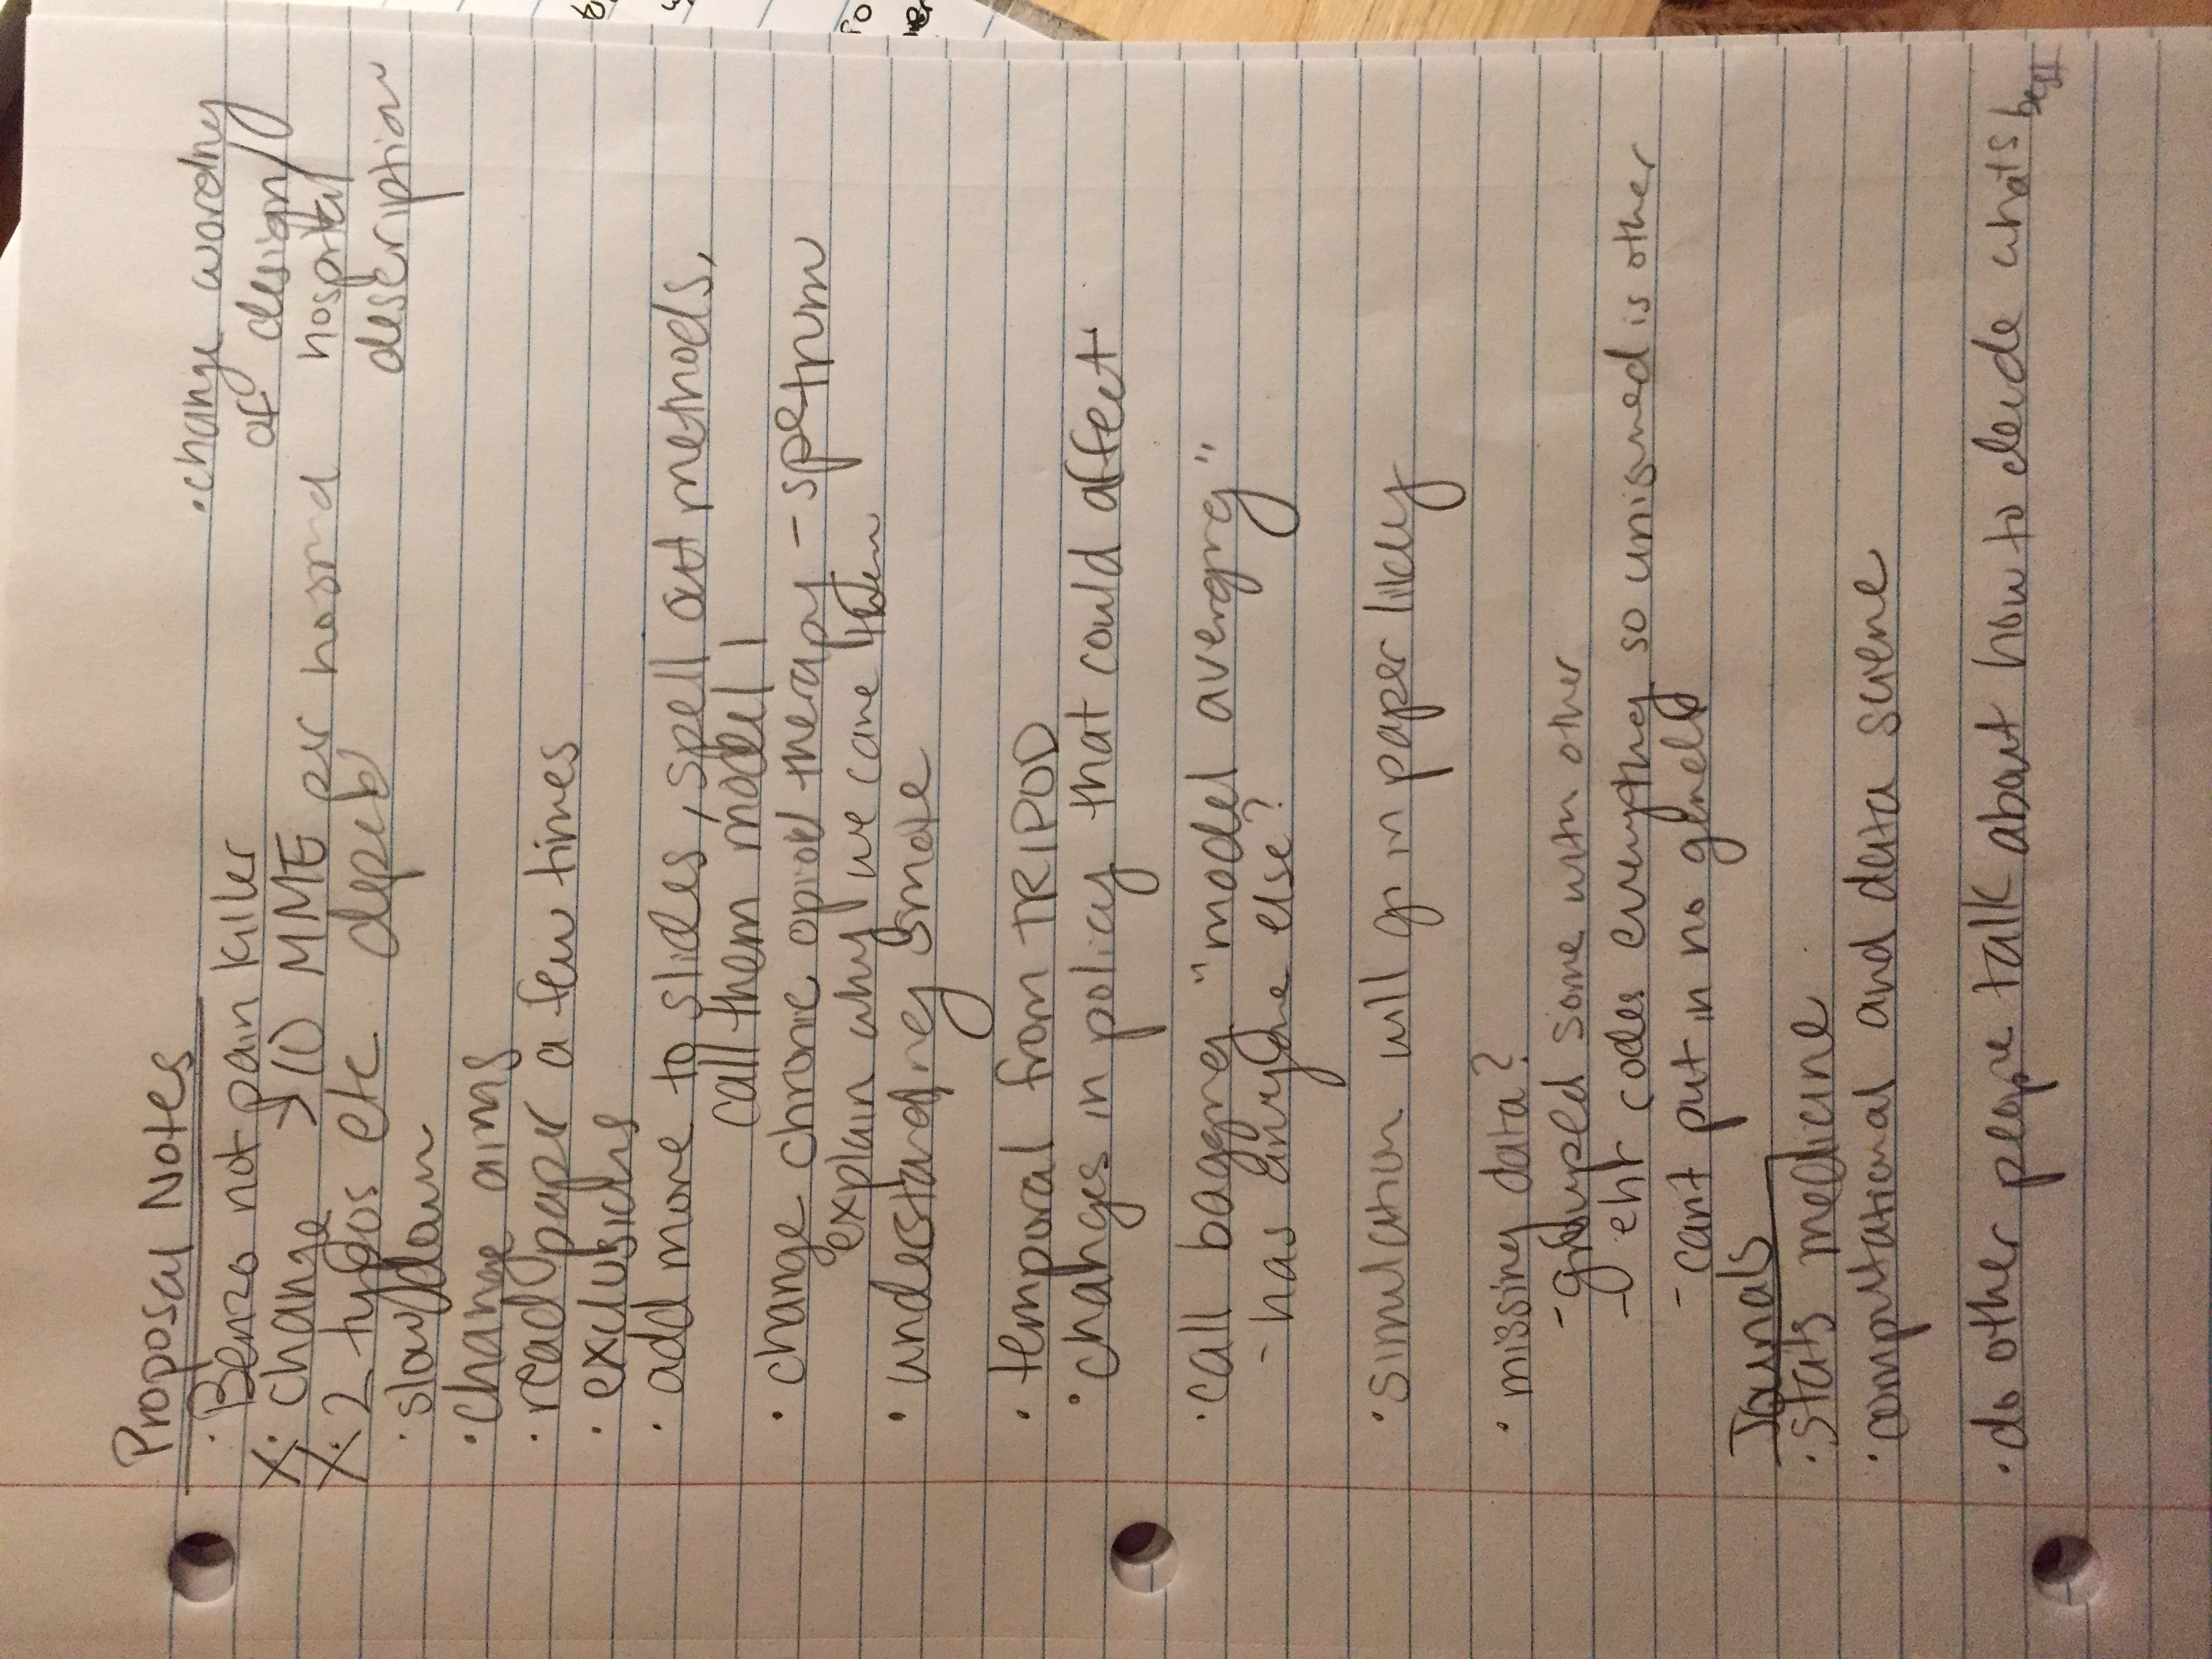 Proposal Notes
· Benzo not pain killer
X · change >10 MME per
X · 2 typos etc
· slow down
· change aims
· read paper a few times
· exclusions
· add more to slides, spell out methods,
call them model 1
· change chronic opioid therapy - spetrum
explain why we care then
· understanding
· temporal from TRIPOD
· changes in policy that could affect
· call bagging "model averging"
- has anyone else?
· simulation will go in paper likely
· missing data?
- grouped some with other
- ehr codes everything so is other
- cant put in no gender
Jounals
· stats medicine
· computational and data sciene
· do other people talk about how to decide whats best
· change wording
of design/
hospital
description